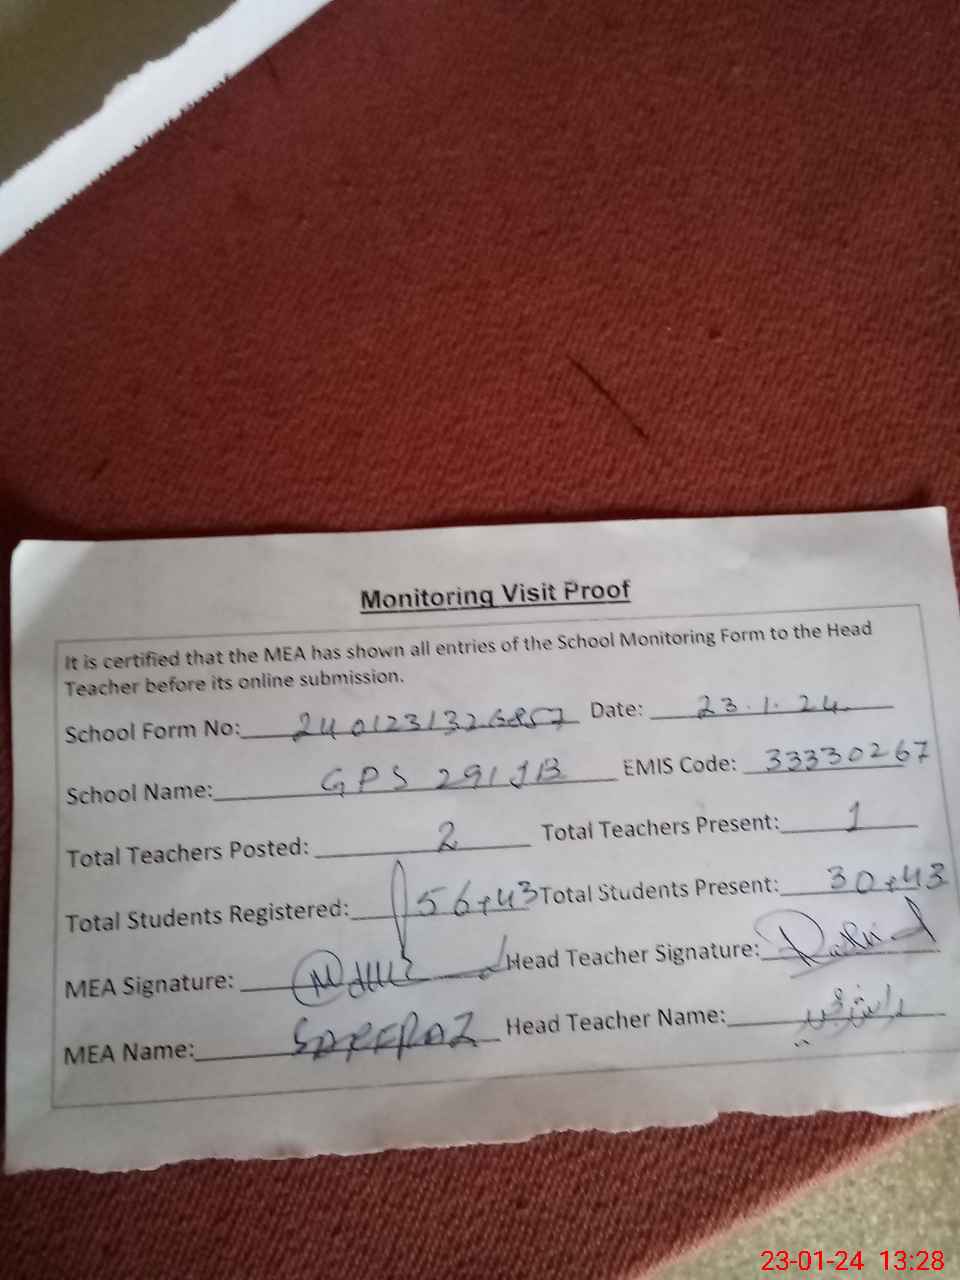 Monitoring Visit Proof
It is certified that the MEA has shown all entries of the School Monitoring Form to the Head
Teacher before its online submission.
School Form No: 2401231326857 Date: 23.1.24
School Name: GPS 291 JB EMIS Code: 33330267
Total Teachers Posted: 2 Total Teachers Present: 1
Total Students Registered: 56+43 Total Students Present: 30+43
MEA Signature: Head Teacher Signature:
MEA Name: SARFRAZ Head Teacher Name:
23-01-24 13:28